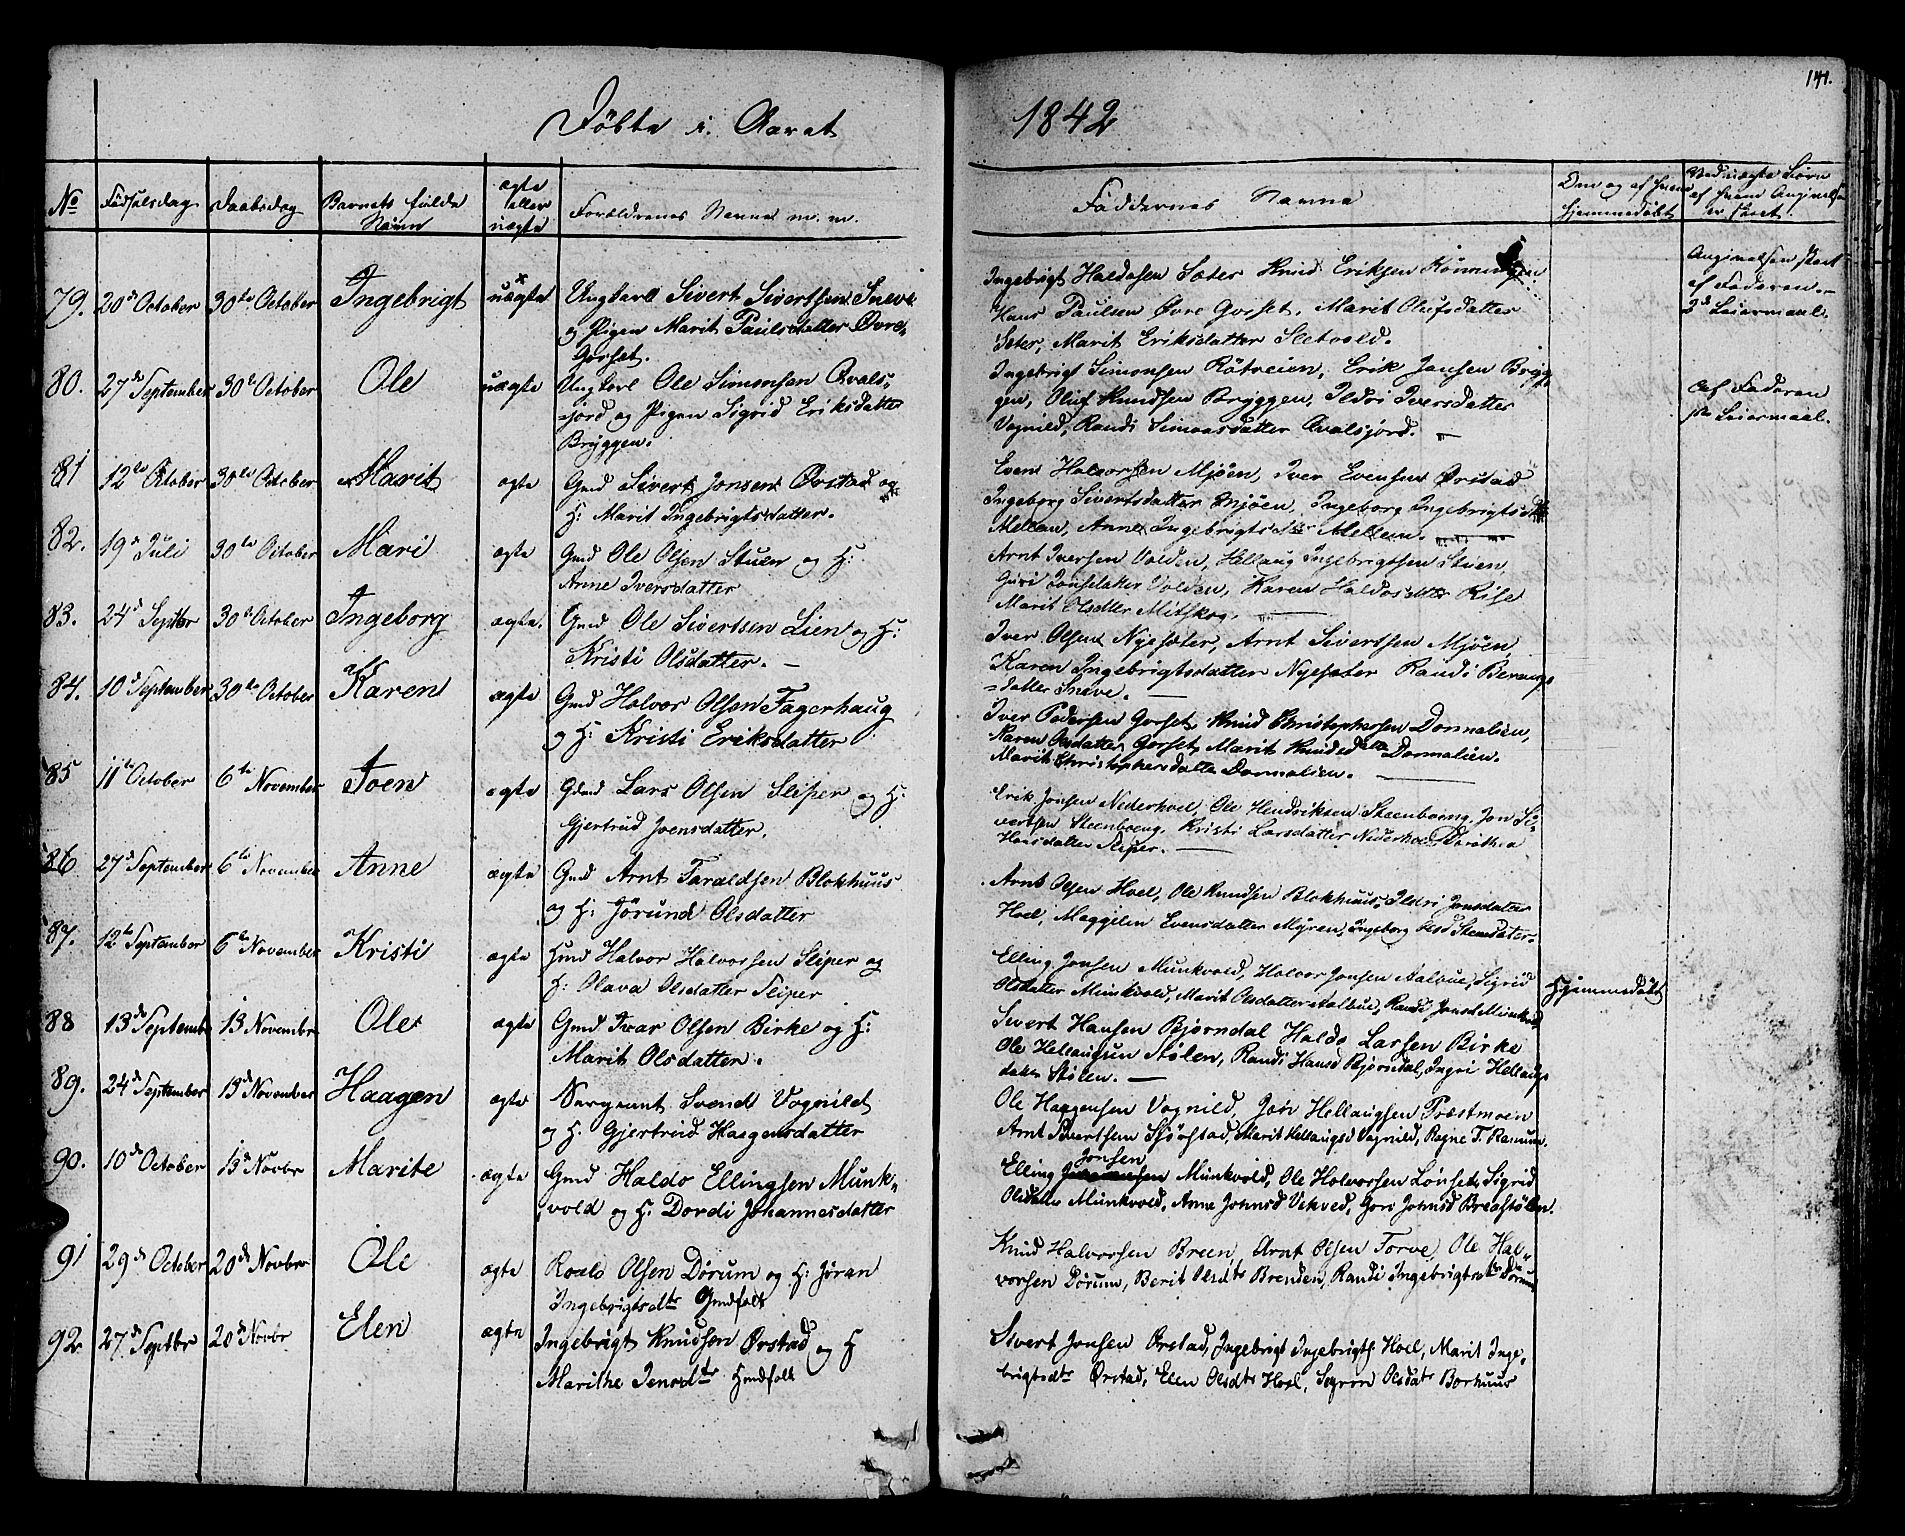 Døbte i Aaret
1842
141.
No
Fødselsdag
Daabsdag
Barnets fulde Navn
ægte eller uægte
Forældrenes Navne m. m.
Faddernes Navne
Om og af hvem hjemmedøbt
Ved uægte Børn af hvem Angivelsen er skeet.
79. 20de October 30te October Ingebrigt uægte Ungkarl Sivert Sivertsen Sneve
og Pigen Marit Paulsdatter Øvre
Gorset.
Ingebrigt Haldosen Sæter Knud Eriksen
Hans Paulsen Øvre Gorset, Marit Olufsdatter
Sæter, Marit Eriksdatter Sletvold.
Angivelsen skeet
af Faderen.
2de Leiermaal.
80. 27de September 30te October Ole uægte Ungkarl Ole Simonsen Qvals-
fjord og Pigen Sigrid Eriksdatter
Bryggen.
Ingebrigt Simonsen Røtveien, Erik Jonsen Bryg-
gen, Oluf Knudsen Bryggen, Ildri Iversdatter
Vognild, Randi Simonsdatter Qvalsjord.
Af Faderen
Leiermaal.
81 12te October 30te October Marit ægte Gmd Sivert Jonsen Ørstad og
H: Marit Ingebrigtsdatter.
Even Halvorsen Mjøen, Iver Evensen Ørstad
Ingeborg Sivertsdatter Mjøen, Ingeborg Ingebrigtsdtr
Mellem, Anne Ingebrigtsdtr Mellem.
82. 19de Juli 30te October Mari ægte Gmd Ole Olsen Stuen og H:
Anne Iversdatter
Arnt Iversen Volden, Hellaug Ingebrigtsen Stuen,
Guri Jonsdatter Volden, Karen Haldosdttr Rise
Marit Olsdtter Mitskog.
83. 24de Septbr 30te October Ingeborg ægte. Gmd Ole Sivertsen Lien og H:
Kristi Olsdatter.
Iver Olsen Nysæter, Arnt Sivertsen Mjøen,
Karen Ingebrigtsdatter Nysæter Randi
datter Sneve.
84. 10de September 30te October Karen ægte Gmd Halvor Olsen Fagerhaug
og H: Kristi Eriksdatter
Iver Pedersen Gorset, Knud Christophersen Donnalien,
Karen Olsdatter Gorset, Marit Knudsdatter Donnalien.
Marit Christophersdatter Donnalien.
85 11te October 6te November Joen ægte Gdmd Lars Olsen Sliper og H:
Gjertrud Joensdatter.
Erik Jonsen Nederhoel, Ole Hendriksen Steenboeng, Jon Si-
vertsen Steenboeng, Kristi Larsdatter Nederhoel, Dorothea
Hansdatter Sliper.
86 27de September 6te November Anne ægte Gmd Arnt Taraldsen Blokhuus
og H: Jørund Olsdatter
Arnt Olsen Hoel, Ole Knudsen Blokhuus, Ildri Jonsdatter
Hoel, Maggelen Evensdatter Myren, Ingeborg
87. 12te September 6te November Kristi ægte Hmd Halvor Halvorsen Sliper og
H: Olava Olsdatter Sliper
Elling Jonsen Munkvold, Halvor Jonsen Aalbue, Sigrid
Olsdatter Munkvold, Marit Olsdatter Aalbue, Randi Jonsd Munkvold
Hjemmedøbt
88 13de September 13 Novembr Ole ægte Gmd Ivar Olsen Birke og H:
Marit Olsdatter.
Sivert Hansen Bjørndal Haldo Larsen Birke
Ole Hellaugsen Stølen, Randi Hansd Bjørndal, Ingri Hellaugs
datter Stølen.
89. 24de September 13de November Haagen ægte Sergeant Svend Vognild
og H: Gjertrud Haagensdatter
Ole Haagensen Vognild, Jon Hellaugsen Præstmoen
Arnt Sivertsen Skjørstad, Marit Hellaugsd Vognild, Ragne T. Ramum.
90. 10de October 13de Novbr Marite ægte Gmd Haldo Ellingsen Munk-
vold og H: Dordi Johannesdatter
Elling Jonsen Munkvold, Ole Halvorsen Lønset, Sigrid
Olsdatter Munkvold, Anne Johnsd Vekved, Gori Johnsd Breafstølen.
91 29de October 20de Novbr Ole ægte Roald Olsen Dørum og H: Jøran
Ingebrigtsdtr Gmdfolk
Knud Halvorsen Breen, Arnt Olsen Torve, Ole Hal-
vorsen Dørum, Berit Olsdtr Brenden, Randi Ingebrigtsdtr Dørum
92 27de Septbr 20de Novbr Elen ægte Ingebrigt Knudsen Ørstad og H
Marithe Jensdtr Hmdfolk
Sivert Jonsen Ørstad, Ingebrigt Ingebrigts Hoel, Marit Inge-
brigtsdtr Ørstad, Elen Olsdtr Hoel, Segron Olsdatr Borhuus